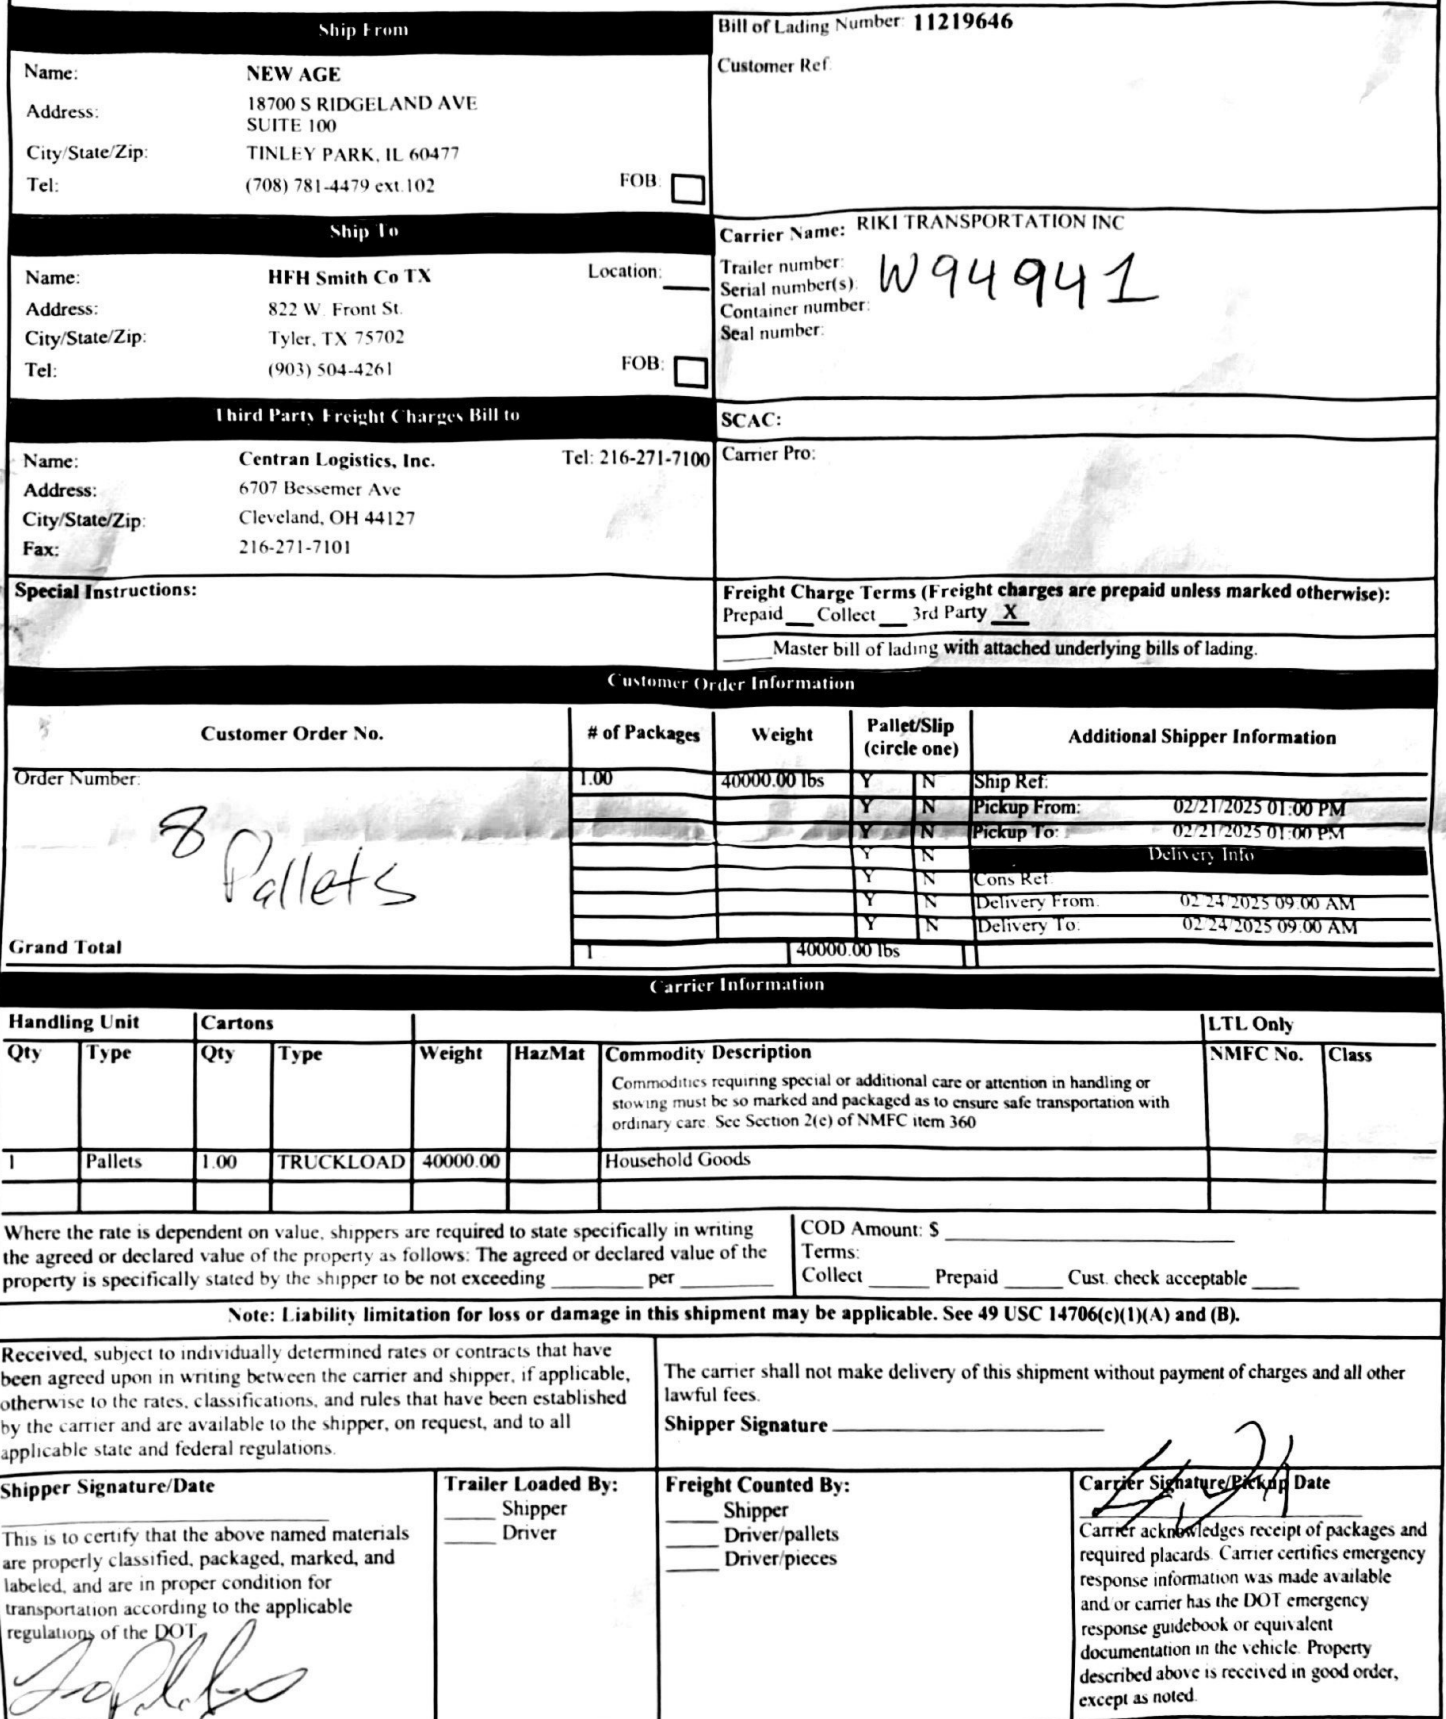 Ship From
Name: NEW AGE
Address: 18700 S RIDGELAND AVE
SUITE 100
City/State/Zip: TINLEY PARK, IL 60477
Tel: (708) 781-4479 ext.102 FOB:
Bill of Lading Number: 11219646
Customer Ref:
Ship To
Name: HFH Smith Co TX Location: ___
Address: 822 W. Front St.
City/State/Zip: Tyler, TX 75702
Tel: (903) 504-4261 FOB:
Carrier Name: RIKI TRANSPORTATION INC
Trailer number:
Serial number(s): W94941
Container number:
Seal number:
Third Party Freight Charges Bill to
Name: Centran Logistics, Inc. Tel: 216-271-7100
Address: 6707 Bessemer Ave
City/State/Zip: Cleveland, OH 44127
Fax: 216-271-7101
SCAC:
Carrier Pro:
Special Instructions:
Freight Charge Terms (Freight charges are prepaid unless marked otherwise):
Prepaid __ Collect __ 3rd Party X
____Master bill of lading with attached underlying bills of lading.
Customer Order Information
Customer Order No. # of Packages Weight Pallet/Slip (circle one) Additional Shipper Information
Order Number: 1.00 40000.00 lbs Y N Ship Ref:
Y N Pickup From: 02/21/2025 01:00 PM
8 Y N Pickup To: 02/21/2025 01:00 PM
Pallets Y N Delivery Info
Y N Cons Ref:
Y N Delivery From: 02/24/2025 09:00 AM
Y N Delivery To: 02/24/2025 09:00 AM
Grand Total 1 40000.00 lbs
Carrier Information
Handling Unit Cartons LTL Only
Qty Type Qty Type Weight HazMat Commodity Description NMFC No. Class
Commodities requiring special or additional care or attention in handling or
stowing must be so marked and packaged as to ensure safe transportation with
ordinary care. See Section 2(e) of NMFC item 360
1 Pallets 1.00 TRUCKLOAD 40000.00 Household Goods
Where the rate is dependent on value, shippers are required to state specifically in writing
the agreed or declared value of the property as follows: The agreed or declared value of the
property is specifically stated by the shipper to be not exceeding ________ per ________
COD Amount: $ ________
Terms:
Collect ______ Prepaid ______ Cust. check acceptable ____
Note: Liability limitation for loss or damage in this shipment may be applicable. See 49 USC 14706(c)(1)(A) and (B).
Received, subject to individually determined rates or contracts that have
been agreed upon in writing between the carrier and shipper, if applicable,
otherwise to the rates, classifications, and rules that have been established
by the carrier and are available to the shipper, on request, and to all
applicable state and federal regulations.
The carrier shall not make delivery of this shipment without payment of charges and all other
lawful fees.
Shipper Signature ________
Shipper Signature/Date
This is to certify that the above named materials
are properly classified, packaged, marked, and
labeled, and are in proper condition for
transportation according to the applicable
regulations of the DOT.
Trailer Loaded By:
____ Shipper
____ Driver
Freight Counted By:
____ Shipper
____ Driver/pallets
____ Driver/pieces
Carrier Signature/Pickup Date
Carrier acknowledges receipt of packages and
required placards. Carrier certifies emergency
response information was made available
and/or carrier has the DOT emergency
response guidebook or equivalent
documentation in the vehicle. Property
described above is received in good order,
except as noted.